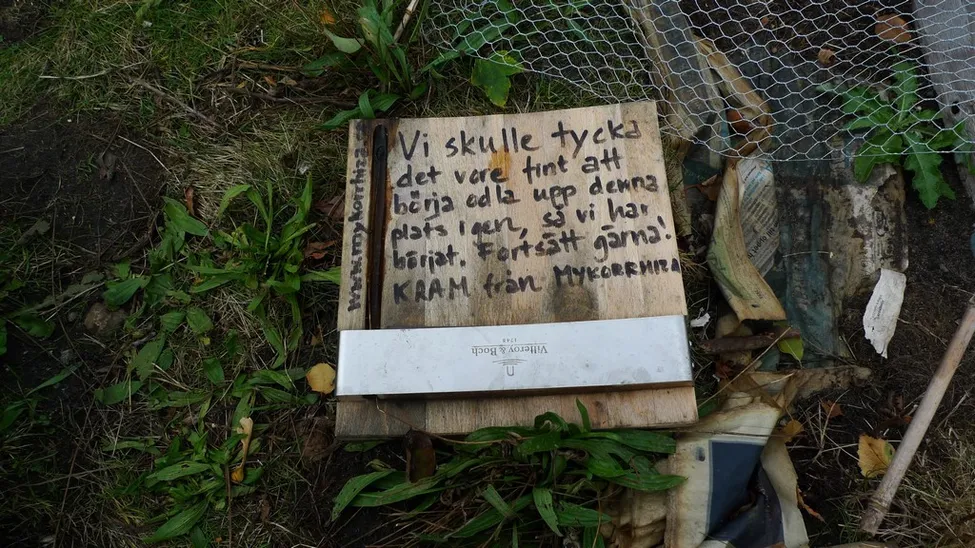 Vi skulle tycka
det vore fint att
börja odla upp denna
plats igen, så vi har
börjat. Fortsätt gärna!
KRAM från MYKORRHIZA
www.mykorrhiza.
Villeroy & Boch
1748